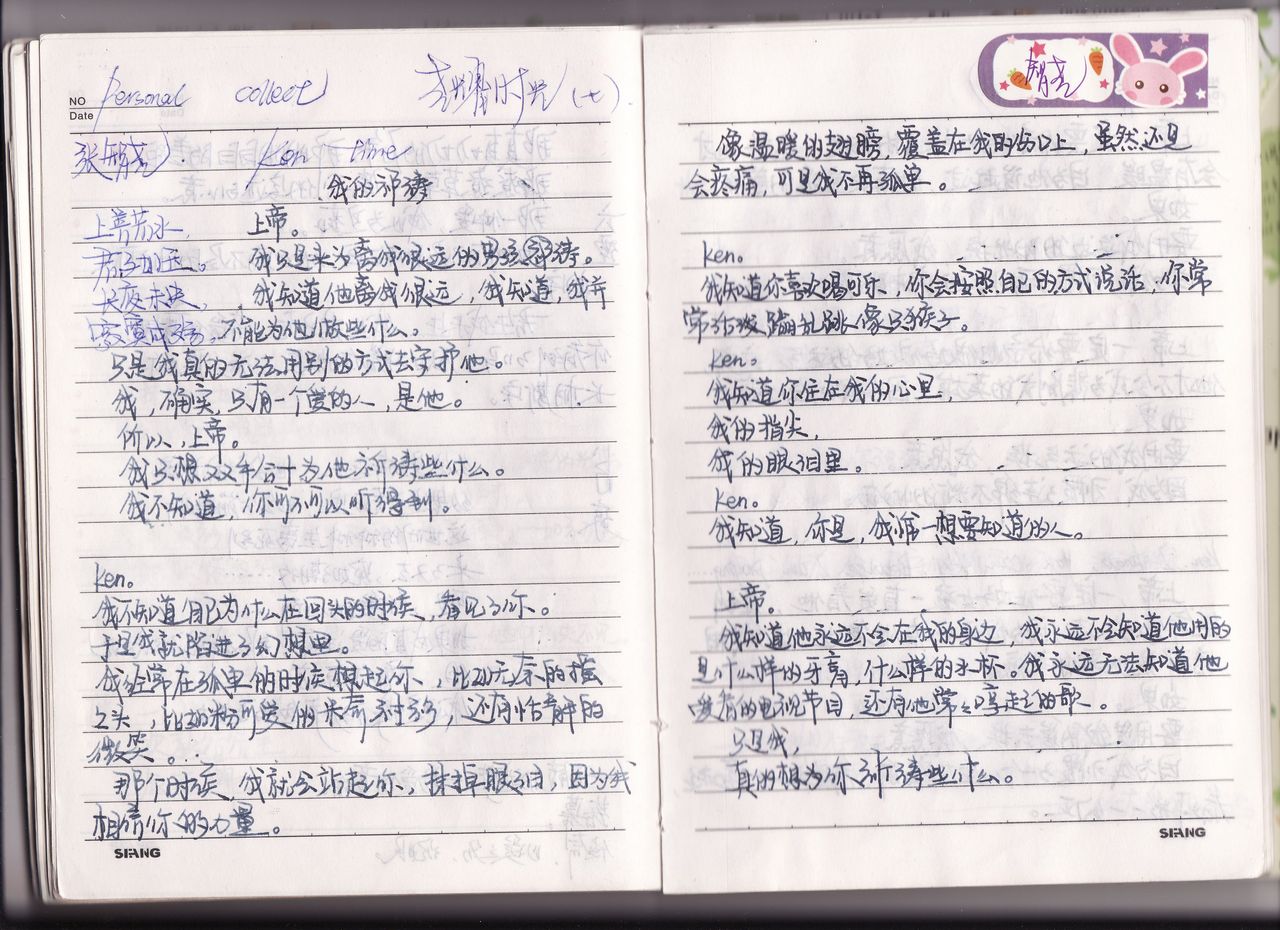 NO Personal collect 时光(七)
Date
张智亮 Ken time
我的祈祷
上善若水, 上帝。
君子如玉。 我只是来为离我很远的男孩祈祷。
长夜未央, 我知道他离我很远,我知道,我并
不能为他做些什么。
只是我真的无法用别的方式去守护他。
我,确实,只有一个爱的人,是他。
所以,上帝。
我只想双手合十为他祈祷些什么。
我不知道,你可不可以听得到。
ken。
我不知道自己为什么在回头的时候,看见了你。
于是我就陷进了幻想里。
我经常在孤单的时候想起你,比如无奈的摇
头,比如粉可爱的米奇衬衫,还有恬静的
微笑。..
那个时候,我就会站起你,抹掉眼泪,因为我
相信你的力量。
SIFANG
智亮
像温暖的翅膀,覆盖在我的伤口上,虽然还是
会疼痛,可是我不再孤单。
ken。
我知道你喜欢喝可乐,你会按照自己的方式说话,你常
常活蹦乱跳像只猴子。
ken。
我知道你住在我的心里,
我的指尖,
我的眼泪里。
ken。
我知道,你是,我唯一想要知道的人。
上帝。
我知道他永远不会在我的身边,我永远不会知道他用的
是什么样的牙膏,什么样的水杯。我永远无法知道他
爱看的电视节目,还有他常常哼起的歌。
只是我,
真的想为你祈祷些什么。
SIFANG